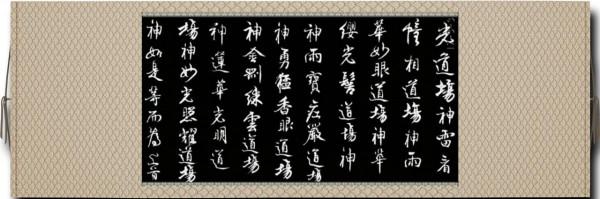 光道場神雷音
幢相道場神雨
華妙眼道場神華
纓光髻道場神
神雨寶莊嚴道場
神勇猛香眼道場
神金剛綵雲道場
神蓮華光明道
場神妙光照耀道場
神如是等而為上首